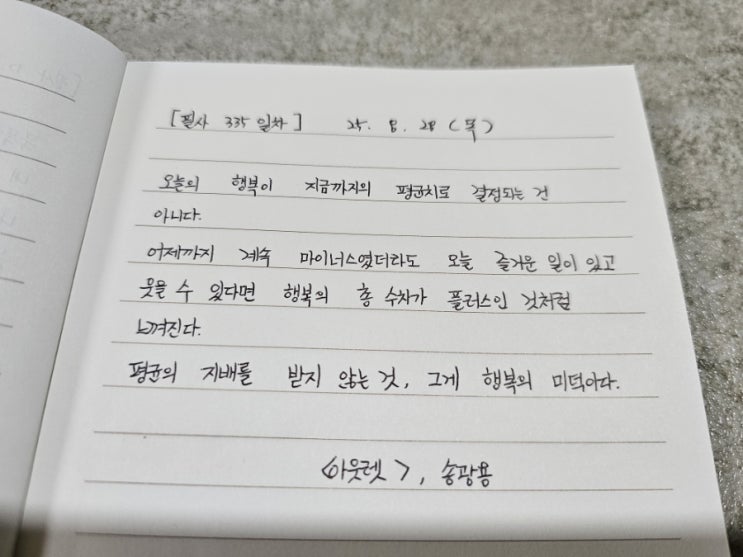 [필사 335일차] 25. 8. 28 (목)
오늘의 행복이 지금까지의 평균치로 결정되는 건
아니다.
어제까지 계속 마이너스였더라도 오늘 즐거운 일이 있고
웃을 수 있다면 행복의 총 수치가 플러스인 것처럼
느껴진다.
평균의 지배를 받지 않는 것, 그게 행복의 미덕이다.
<아웃렛>, 송광용